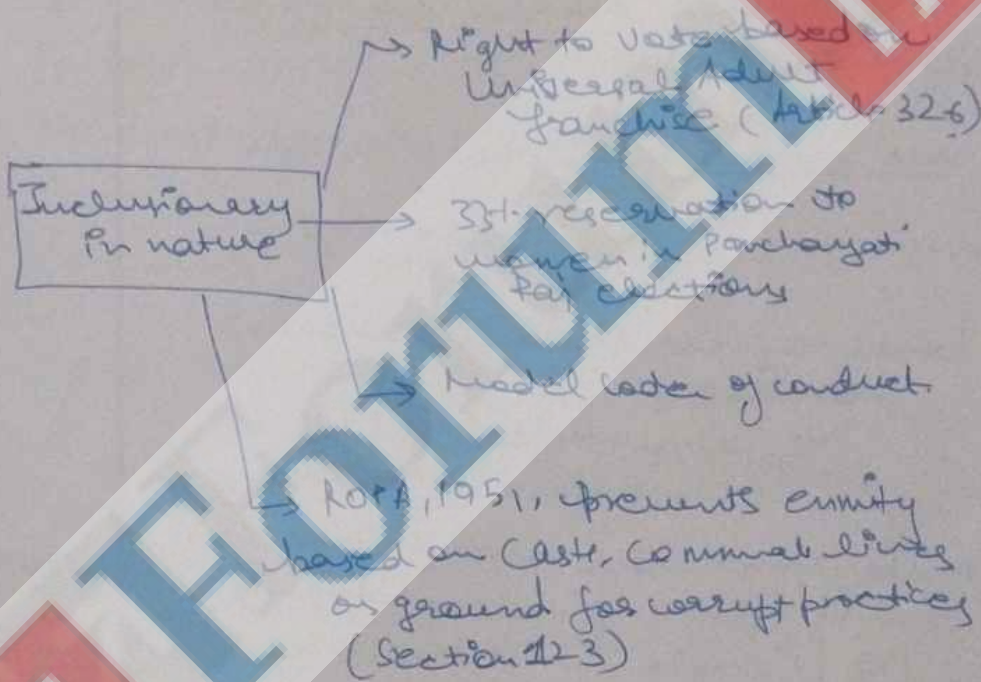 → Right to vote based on
Universal Adult
franchise (Article 326)
Inclusionary
in nature
→ 33% reservation to
women in Panchayati
Raj elections
→ Model code of conduct.
→ ROPA, 1951, prevents enmity
based on Caste, Communal lines
as ground for corrupt practices
(Section 123)
Forum